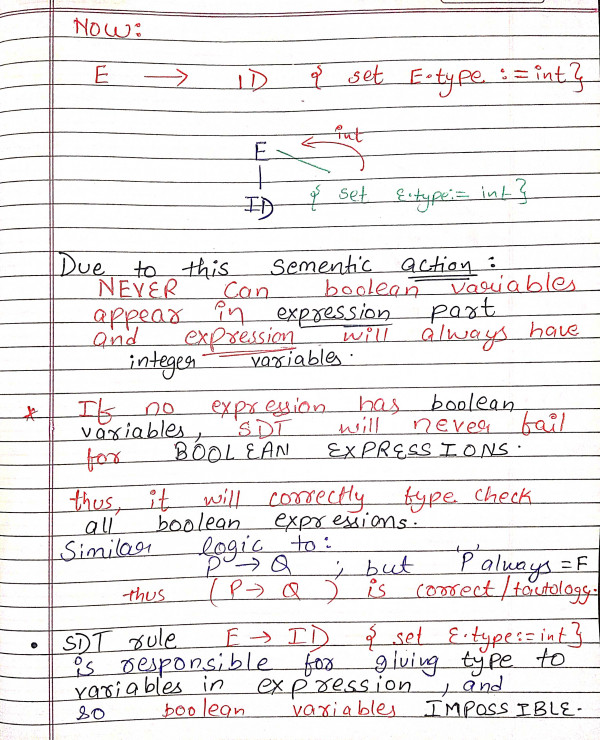 NOW:
E → ID { set E.type := int }
int
E
ID { set E.type:= int }
Due to this sementic action :
NEVER Can boolean variables
appear in expression part
and expression will always have
integer variables.
* If no expression has boolean
variables, SDT will never fail
for BOOLEAN EXPRESSIONS.
thus, it will correctly type check
all boolean expressions.
Similar logic to:
P → Q ; but 'P' always = F
thus (P → Q) is correct/tautology.
• SDT rule E → ID { set E.type:= int }
is responsible for giving type to
variables in expression, and
so boolean variables IMPOSSIBLE.